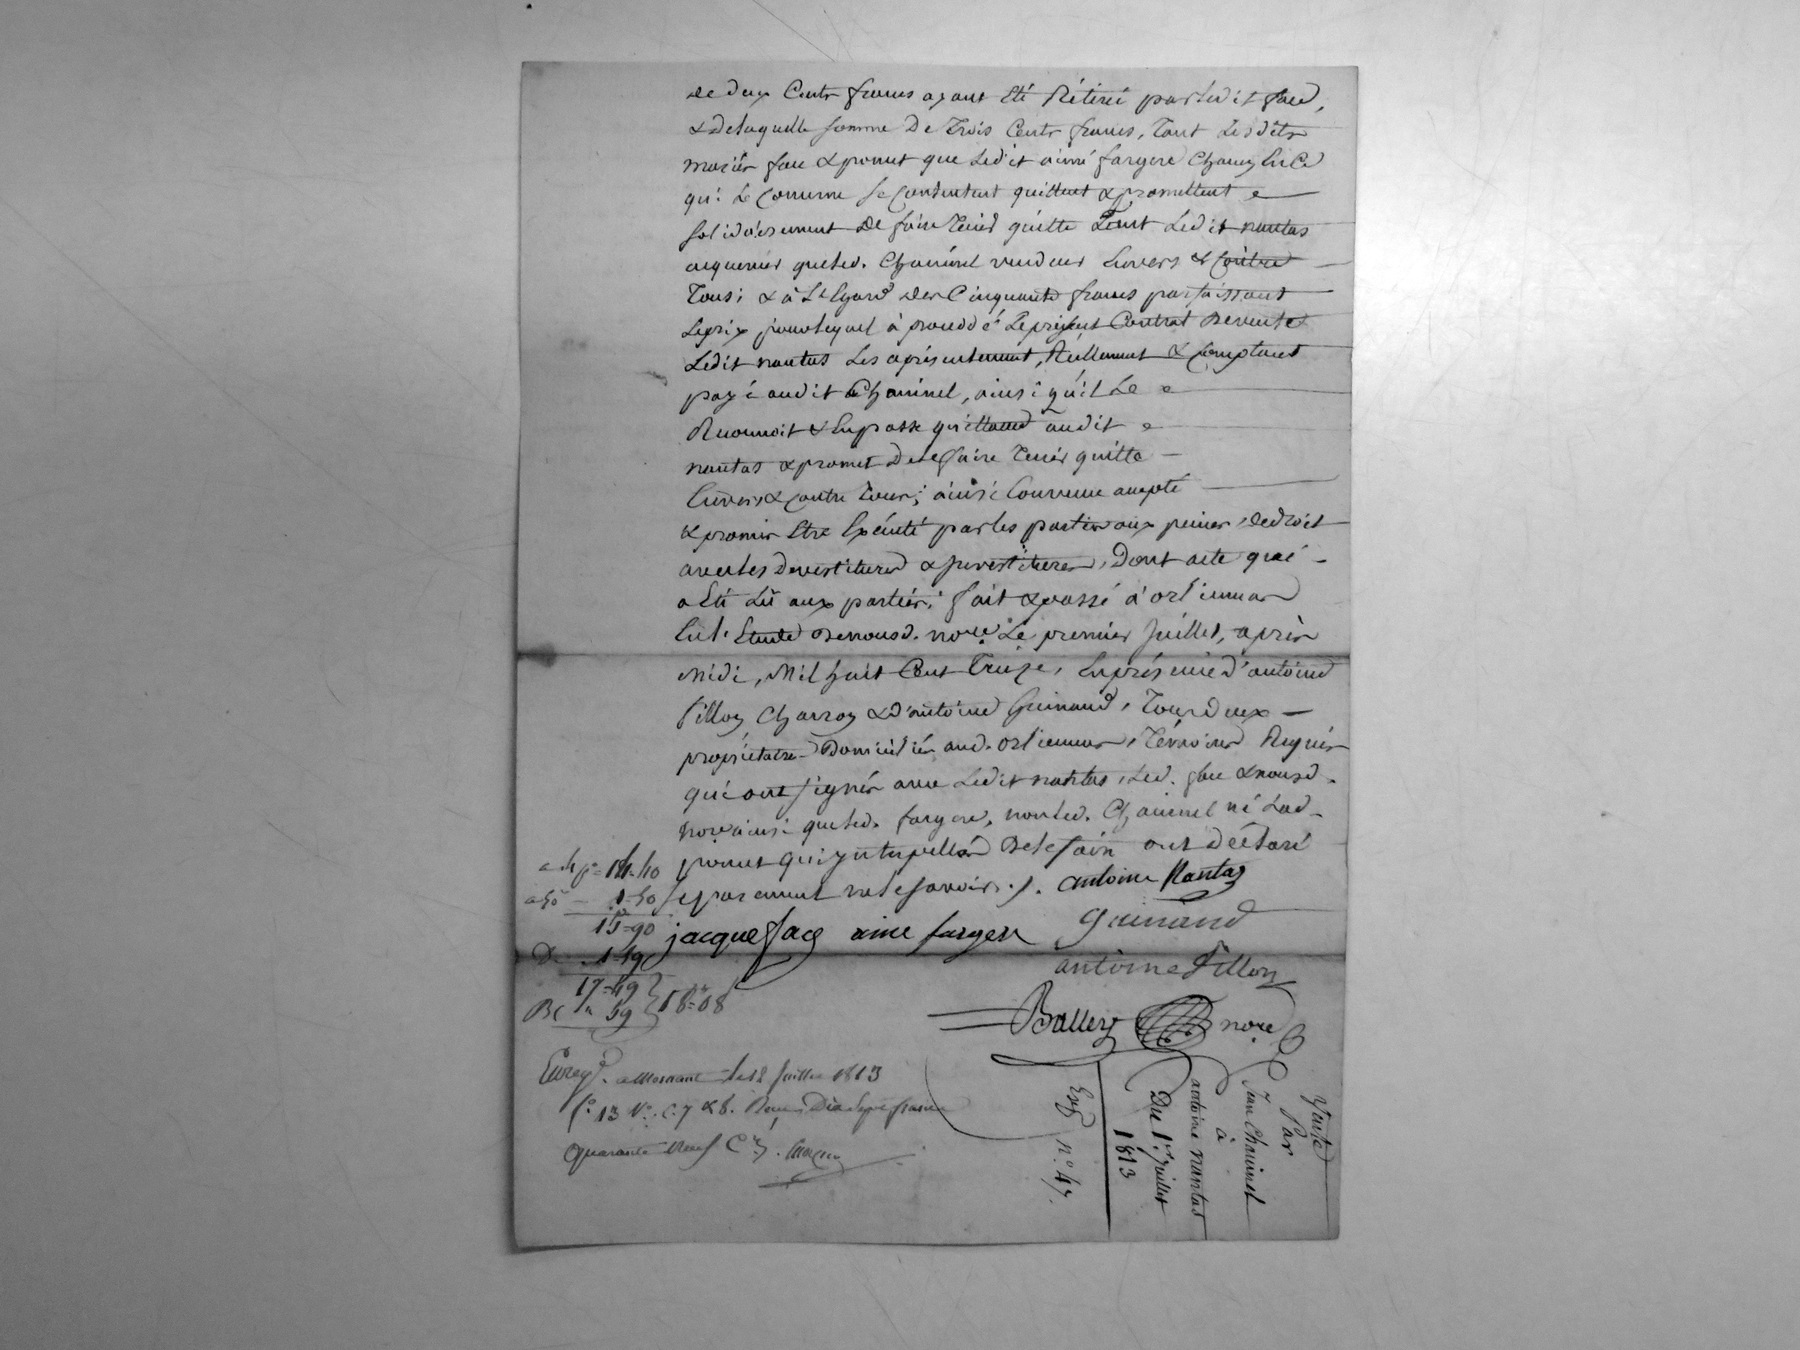 de deux Cents francs ayant été Retiré par ledit face,
& de laquelle somme De Trois Cents francs, Tant Lesdits
mariés face & ponut que Ledit aimé fargere Chacun En Ce
qui Le Concerne se Contentent quittent & promettent
solidairement de faire Tenir quitte Tant Ledit nantas
acquereur queled. Chavinel vendeur Envers & Contre
Tous; & à L'Egard des Cinquante francs parfaissant
Leprix pourlequel à procédé Leprésent Contrat Devente
Ledit nantas Les aprésentement, Réellement & Comptant
payé audit Chavinel, ainsi qu'il Le
Reconnoit & Enpasse quittance audit
nantas & promet Delefaire Tenir quitte
Envers & Contre Tous; ainsi Convenu accepté
& promis Etre Exécuté par les parties aux peines de droit
avec les devestitures & investitures, Dont acte qui
a Eté Lû aux parties; fait & passé à orliennas
En L'Etude Denousd. nore. Le premier Juillet, après
Midi, Mil huit Cent Treize, Enprésence d'antoine
Pillon Charron & D'antoine Guinand, Tous deux
propriétaires Domiciliés aud. orliennas, Témoins Requis
qui ont signés avec Ledit nantas, Led. face & nousd.
nore ainsi queled. fargere, nonled. Chavinel ni Lad.
ponut qui yinterpellés Delefaire ont déclaré
separement nelesavoir ./. antoine Nantas
guinand
jacque face aime fargere
antoine Pillon
Ballery nore
14-40
1-50
15=90
1-59
17=49
59
18=08
Enregé. à Mornant le 12 Juillet 1813
fo. 13 Vo. C. 7 & 8. Reçu Dix Sept francs
quarante Neuf Ces.
Vente
Par
Jean Chavinel
à
antoine nantas
Du 1er juillet
1813
Exp no. 47.